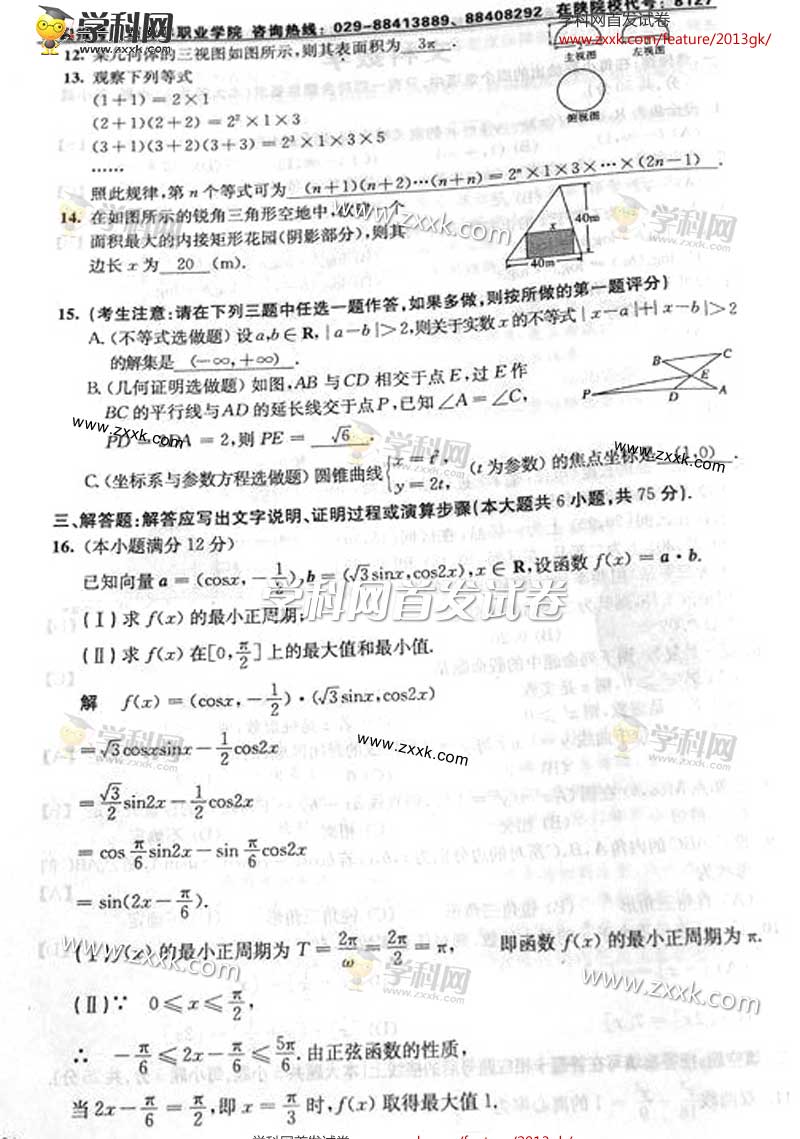 职业学院 咨询热线：029-88413889、88408292 在陕院校代号：8127
www.zxxk.com/feature/2013gk/
12. 某几何体的三视图如图所示,则其表面积为 3π .
主视图 左视图
俯视图
13. 观察下列等式
(1+1)=2×1
(2+1)(2+2)=2²×1×3
(3+1)(3+2)(3+3)=2³×1×3×5
……
照此规律,第 n 个等式可为 (n+1)(n+2)…(n+n)=2ⁿ×1×3×…×(2n-1) .
14. 在如图所示的锐角三角形空地中,欲建一个
面积最大的内接矩形花园(阴影部分),则其
边长 x 为 20 (m).
x 40m
40m
15. (考生注意:请在下列三题中任选一题作答,如果多做,则按所做的第一题评分)
A.(不等式选做题) 设 a,b∈R,|a-b|>2,则关于实数 x 的不等式 |x-a|+|x-b|>2
的解集是 (-∞,+∞) .
B.(几何证明选做题) 如图,AB 与 CD 相交于点 E,过 E 作
BC 的平行线与 AD 的延长线交于点 P,已知 ∠A=∠C,
PD=2DA=2,则 PE= √6 .
B C E P D A
C.(坐标系与参数方程选做题) 圆锥曲线{x=t², y=2t, (t 为参数) 的焦点坐标是 (1,0) .
三、解答题:解答应写出文字说明、证明过程或演算步骤(本大题共 6 小题,共 75 分).
16. (本小题满分 12 分)
已知向量 a=(cosx,-1/2),b=(√3sinx,cos2x),x∈R,设函数 f(x)=a·b.
(Ⅰ) 求 f(x) 的最小正周期;
(Ⅱ) 求 f(x) 在[0,π/2]上的最大值和最小值.
解 f(x)=(cosx,-1/2)·(√3sinx,cos2x)
=√3cosxsinx-1/2cos2x
=√3/2sin2x-1/2cos2x
=cosπ/6sin2x-sinπ/6cos2x
=sin(2x-π/6).
(Ⅰ)f(x) 的最小正周期为 T=2π/ω=2π/2=π, 即函数 f(x) 的最小正周期为 π.
(Ⅱ)∵ 0≤x≤π/2,
∴ -π/6≤2x-π/6≤5π/6.由正弦函数的性质,
当 2x-π/6=π/2,即 x=π/3 时,f(x) 取得最大值 1.
学科网首发试卷
学科网
zxxk.com
www.zxxk.com